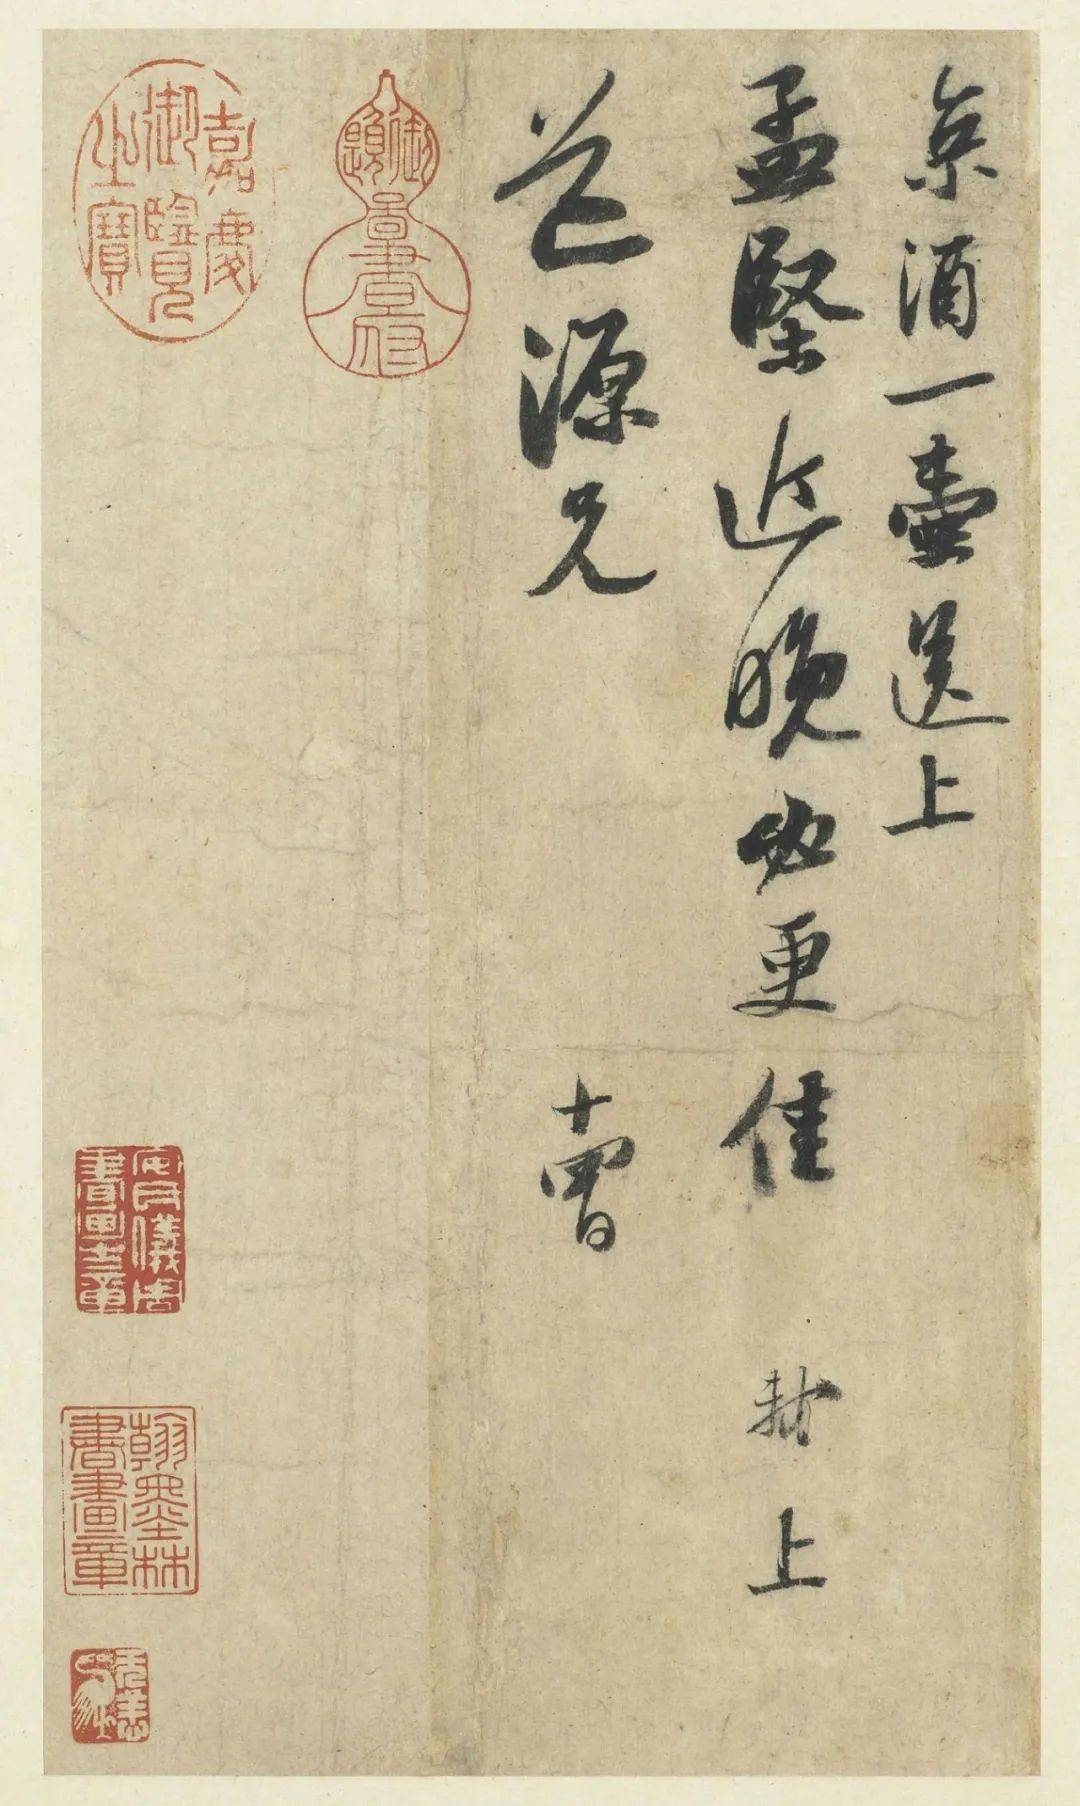 京酒一壺送上
孟堅近晚必更佳 黻上
道源兄 十曹
御題圖書府
嘉慶
御覽
之寶
安氏儀周
書畫之章
翰墨林
書畫章